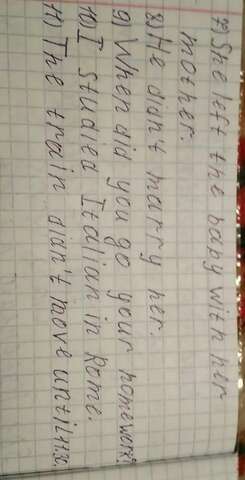 7) She left the baby with her
mother.
8) He didn't marry her.
9) When did you go your homework?
10) I studied Italian in Rome.
11) The train didn't move until